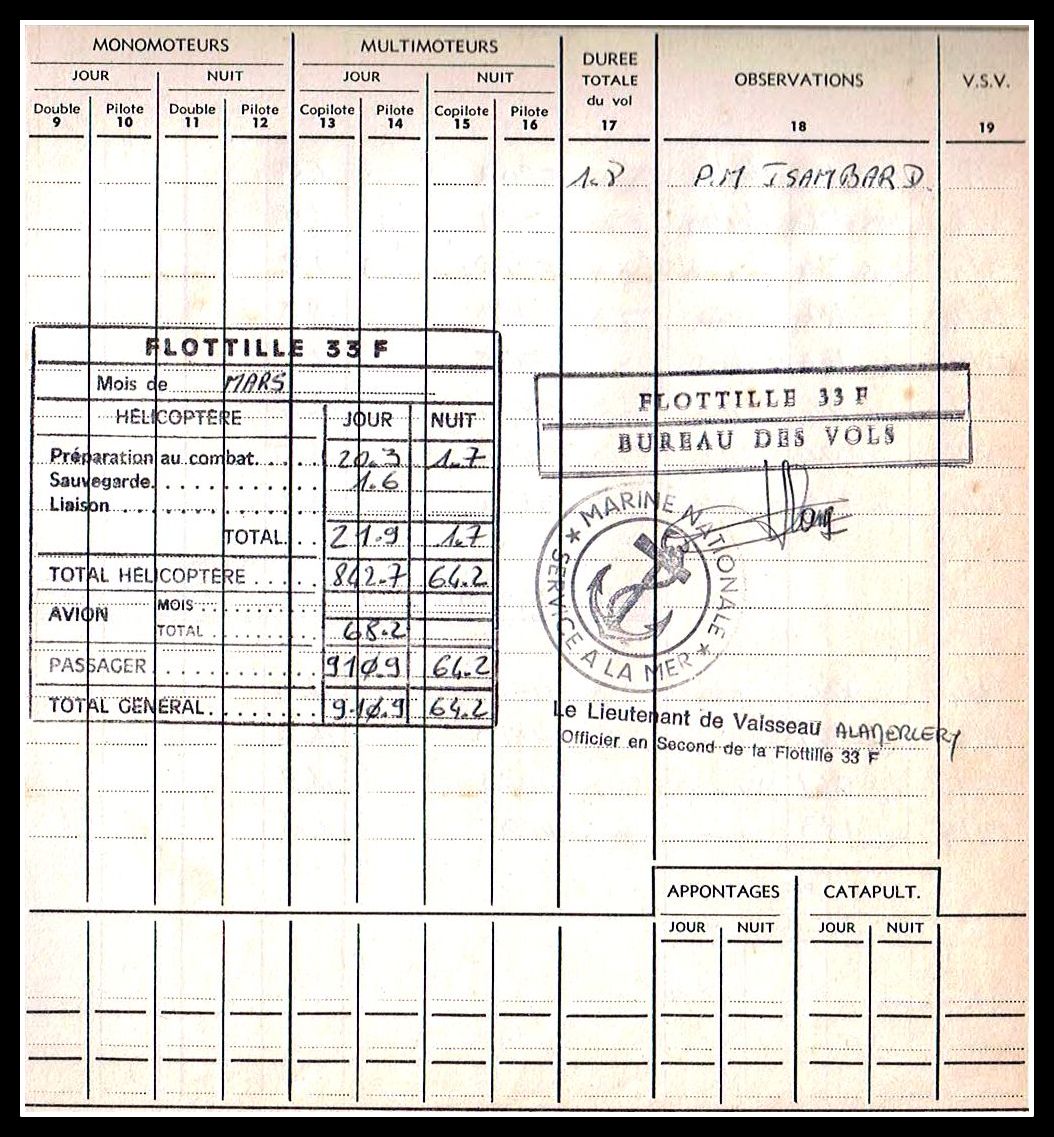 MONOMOTEURS MULTIMOTEURS DUREE TOTALE du vol OBSERVATIONS V.S.V.
JOUR NUIT JOUR NUIT
Double Pilote Double Pilote Copilote Pilote Copilote Pilote
9 10 11 12 13 14 15 16 17 18 19
1.8 P.M ISAMBARD.
FLOTTILLE 33 F
Mois de MARS
HÉLICOPTÈRE JOUR NUIT
Préparation au combat..... 20.3 1.7
Sauvegarde............ 1.6
Liaison................
TOTAL... 21.9 1.7
TOTAL HÉLICOPTÈRE..... 842.7 64.2
AVION MOIS...........
TOTAL.......... 68.2
PASSAGER............. 910.9 64.2
TOTAL GÉNÉRAL........ 910.9 64.2
FLOTTILLE 33 F
BUREAU DES VOLS
★ MARINE NATIONALE ★
SERVICE A LA MER
Le Lieutenant de Vaisseau
Officier en Second de la Flottille 33 F
APPONTAGES CATAPULT.
JOUR NUIT JOUR NUIT